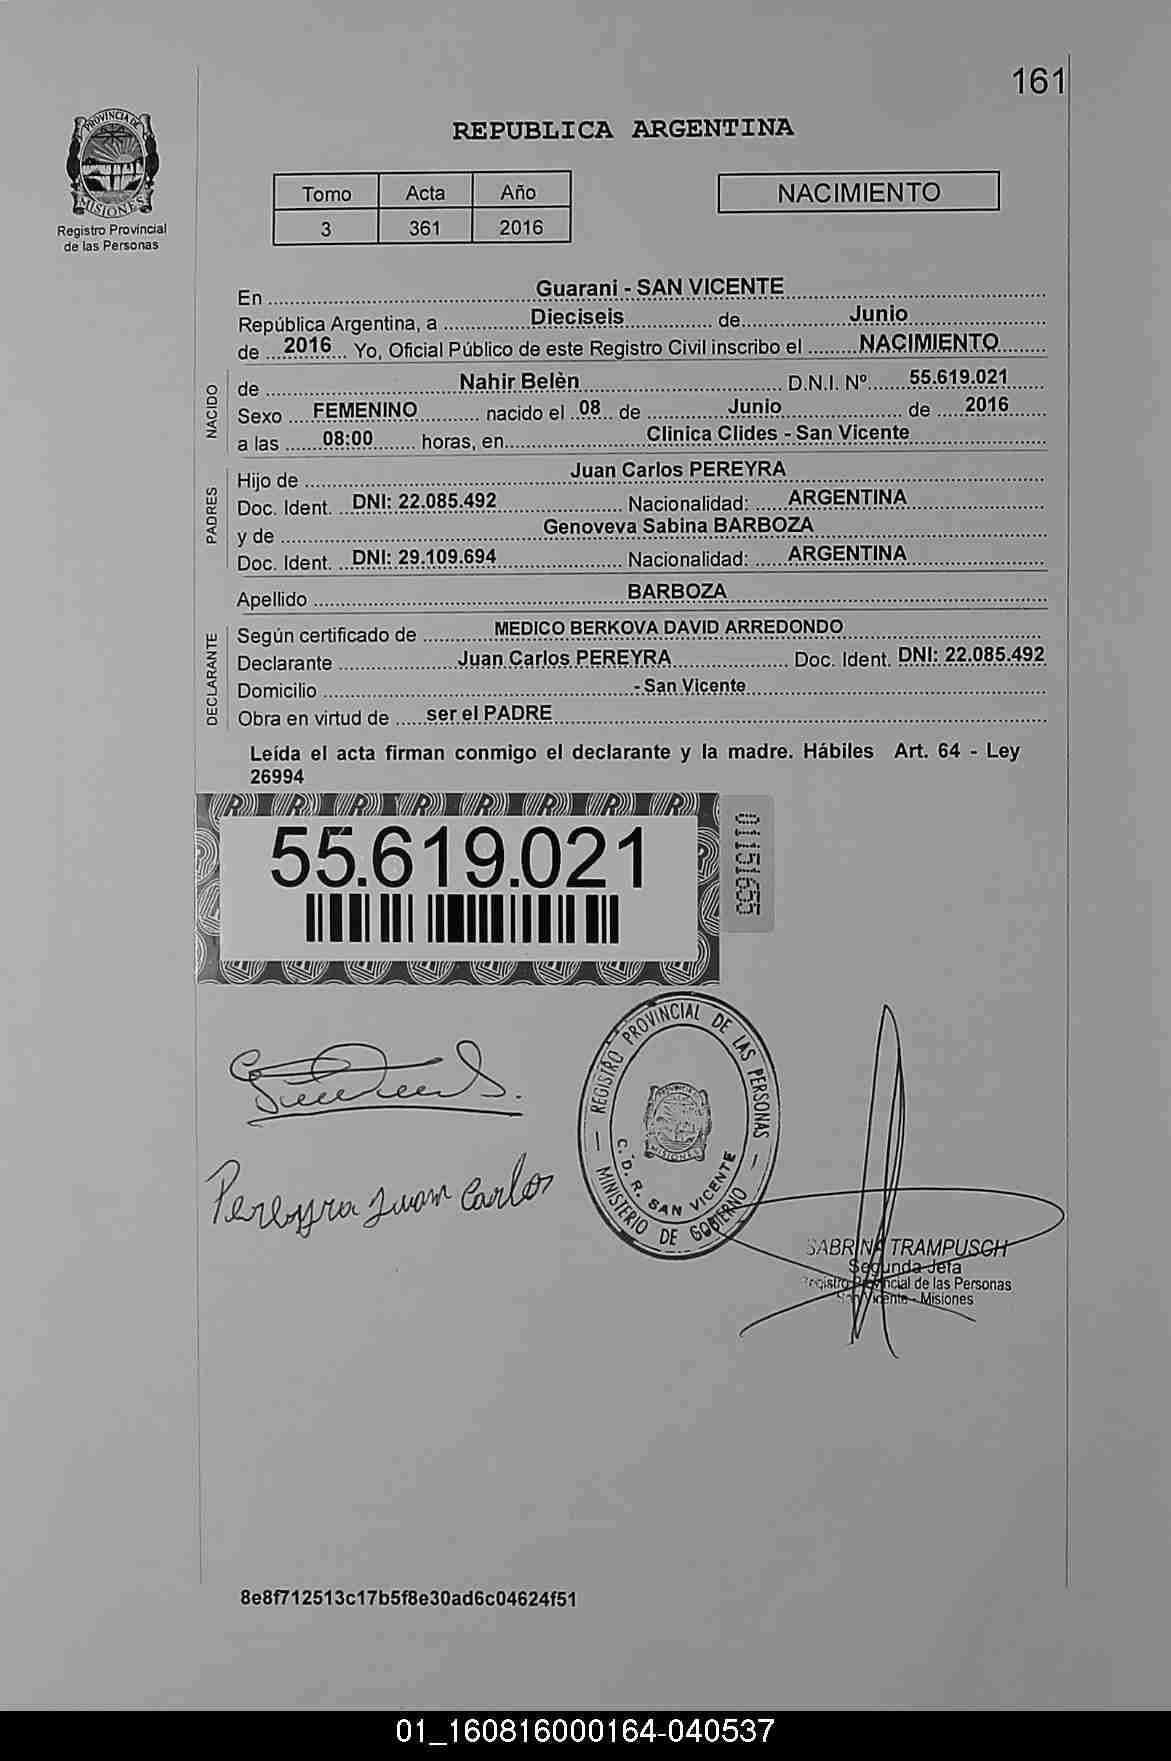 161
PROVINCIA DE
MISIONES
Registro Provincial
de las Personas
REPUBLICA ARGENTINA
Tomo Acta Año
3 361 2016
NACIMIENTO
En Guarani - SAN VICENTE
República Argentina, a Dieciseis de Junio
de 2016 Yo, Oficial Público de este Registro Civil inscribo el NACIMIENTO
NACIDO
de Nahir Belèn D.N.I. Nº 55.619.021
Sexo FEMENINO nacido el 08 de Junio de 2016
a las 08:00 horas, en Clinica Clides - San Vicente
PADRES
Hijo de Juan Carlos PEREYRA
Doc. Ident. DNI: 22.085.492 Nacionalidad: ARGENTINA
y de Genoveva Sabina BARBOZA
Doc. Ident. DNI: 29.109.694 Nacionalidad: ARGENTINA
Apellido BARBOZA
DECLARANTE
Según certificado de MEDICO BERKOVA DAVID ARREDONDO
Declarante Juan Carlos PEREYRA Doc. Ident. DNI: 22.085.492
Domicilio - San Vicente
Obra en virtud de ser el PADRE
Leída el acta firman conmigo el declarante y la madre. Hábiles Art. 64 - Ley
26994
55.619.021
01151655
REGISTRO PROVINCIAL DE LAS PERSONAS
MISIONES
C. D. R. SAN VICENTE
MINISTERIO DE GOBIERNO
Pereyra Juan Carlos
SABRINA TRAMPUSCH
Segunda Jefa
Registro Provincial de las Personas
San Vicente - Misiones
8e8f712513c17b5f8e30ad6c04624f51
01_160816000164-040537